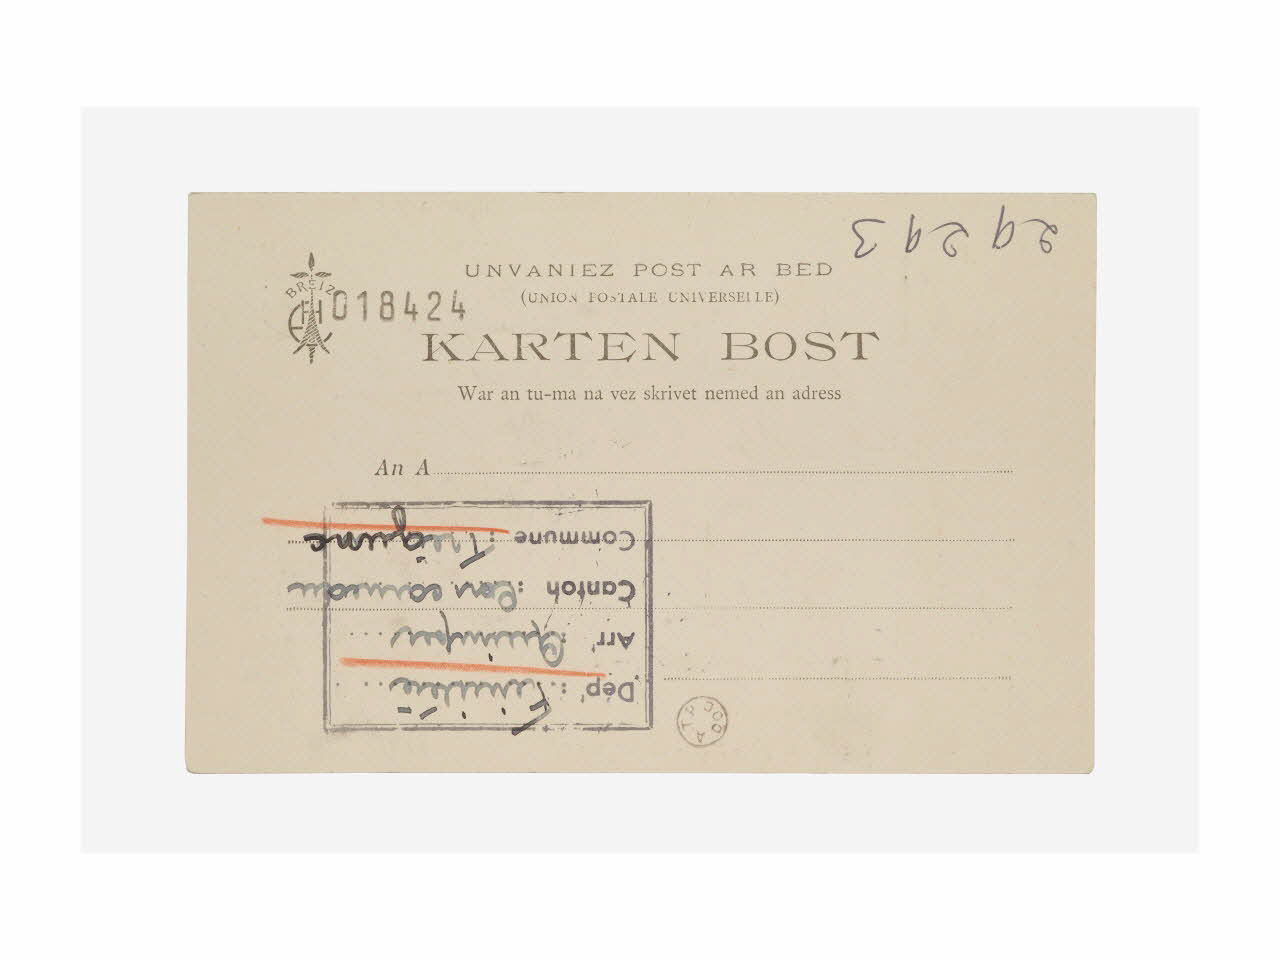 29293
UNVANIEZ POST AR BED
(UNION POSTALE UNIVERSELLE)
BREIZ
H018424
KARTEN BOST
War an tu-ma na vez skrivet nemed an adress
An A
Dépt : Finistère
Arrt : Quimper
Canton : Concarneau
Commune : Trégunc
ATP DOC